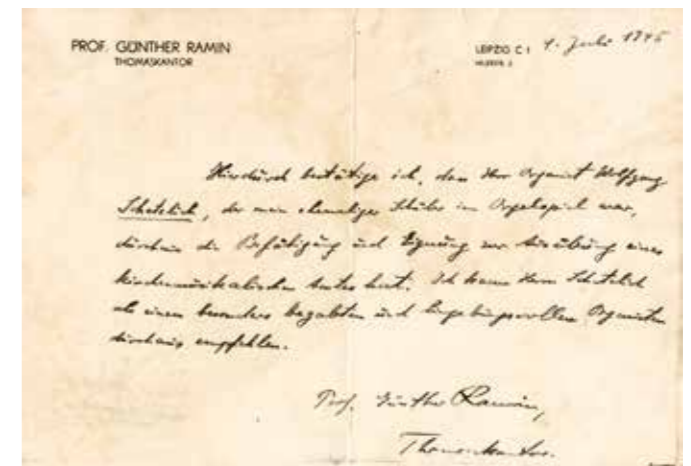 PROF. GÜNTHER RAMIN
THOMASKANTOR
LEIPZIG C 1 4. Juli 1945
Hierdurch bestätige ich, dass Herr Organist Wolfgang
Schetelich, der mein ehemaliger Schüler im Orgelspiel war,
durchaus die Befähigung und Eignung zur Ausübung eines
kirchenmusikalischen Amtes hat. Ich kann Herrn Schetelich
als einen besonders begabten und hingebungsvollen Organisten
durchaus empfehlen.
Prof. Günther Ramin,
Thomaskantor.